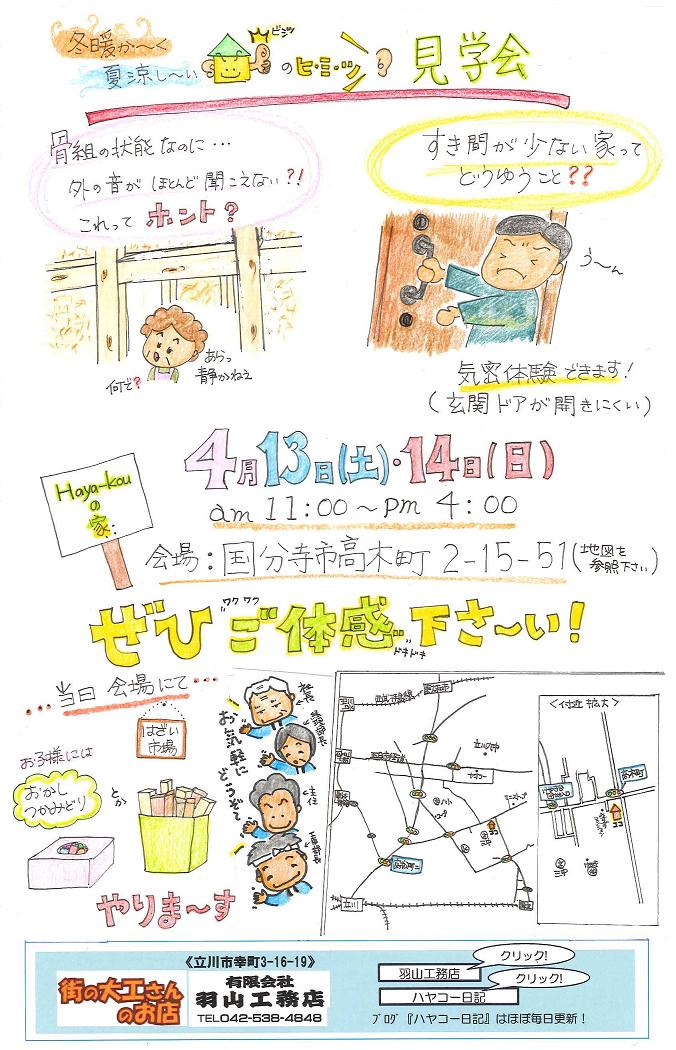 冬暖か～く
夏涼し～い
ビシッ
のヒ・ミ・ツ
見学会
骨組の状態なのに…
外の音がほとんど聞こえない?!
これってホント?
すき間が少ない家って
どうゆうこと??
う～ん
何で?
あらっ
静かねえ
気密体験できます!
(玄関ドアが開きにくい)
4月13日(土)・14日(日)
am 11:00～pm 4:00
Haya-kou
の
家
会場：国分寺市高木町 2-15-51(地図を参照下さい)
ワクワク
ぜひ ご体感 下さ～い!
ドキドキ
…当日 会場にて…
はざい
市場
お子様には
おかし
つかみどり
とか
やりま～す
お気軽にどうぞ
社長
〈付近拡大〉
立川
高木町
《立川市幸町3-16-19》
街の大工さん
のお店
有限会社
羽山工務店
TEL042-538-4848
クリック!
羽山工務店
クリック!
ハヤコー日記
ブログ『ハヤコー日記』はほぼ毎日更新!